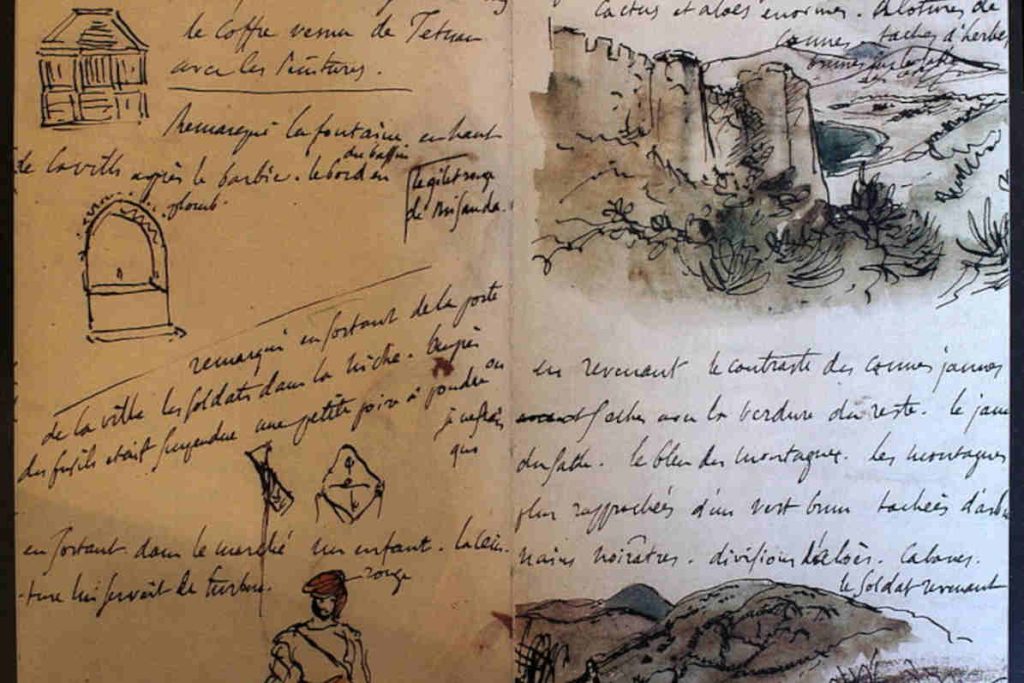 le coffre venu de Tetuan
avec les peintures.
Remarqué la fontaine en haut
de la ville après le barbier. le bord en
du bassin
plomb.
le gilet rouge
de
remarqué en sortant de la porte
de la ville les soldats dans la niche. Auprès
des fusils était suspendue une petite poire à poudre ou
je ne sais
quoi
en sortant dans le marché un enfant. la cein-
-ture lui servait de turban.
rouge
cactus et aloès enormes. clotures de
cannes. taches d'herbes
brunes sur le sable
en revenant le contraste des cannes jaunes
seches avec la verdure du reste. le jaune
du sable. le bleu des montagnes. les montagnes
plus rapprochées d'un vert brun tachées d'arbres
nains noirâtres. divisions d'aloès. Cabanes.
le soldat revenant